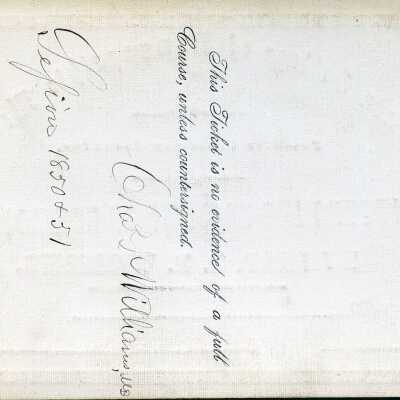 This Ticket is no evidence of a full
Course, unless countersigned.
Chas Williams, MD
Session 1850 & 51